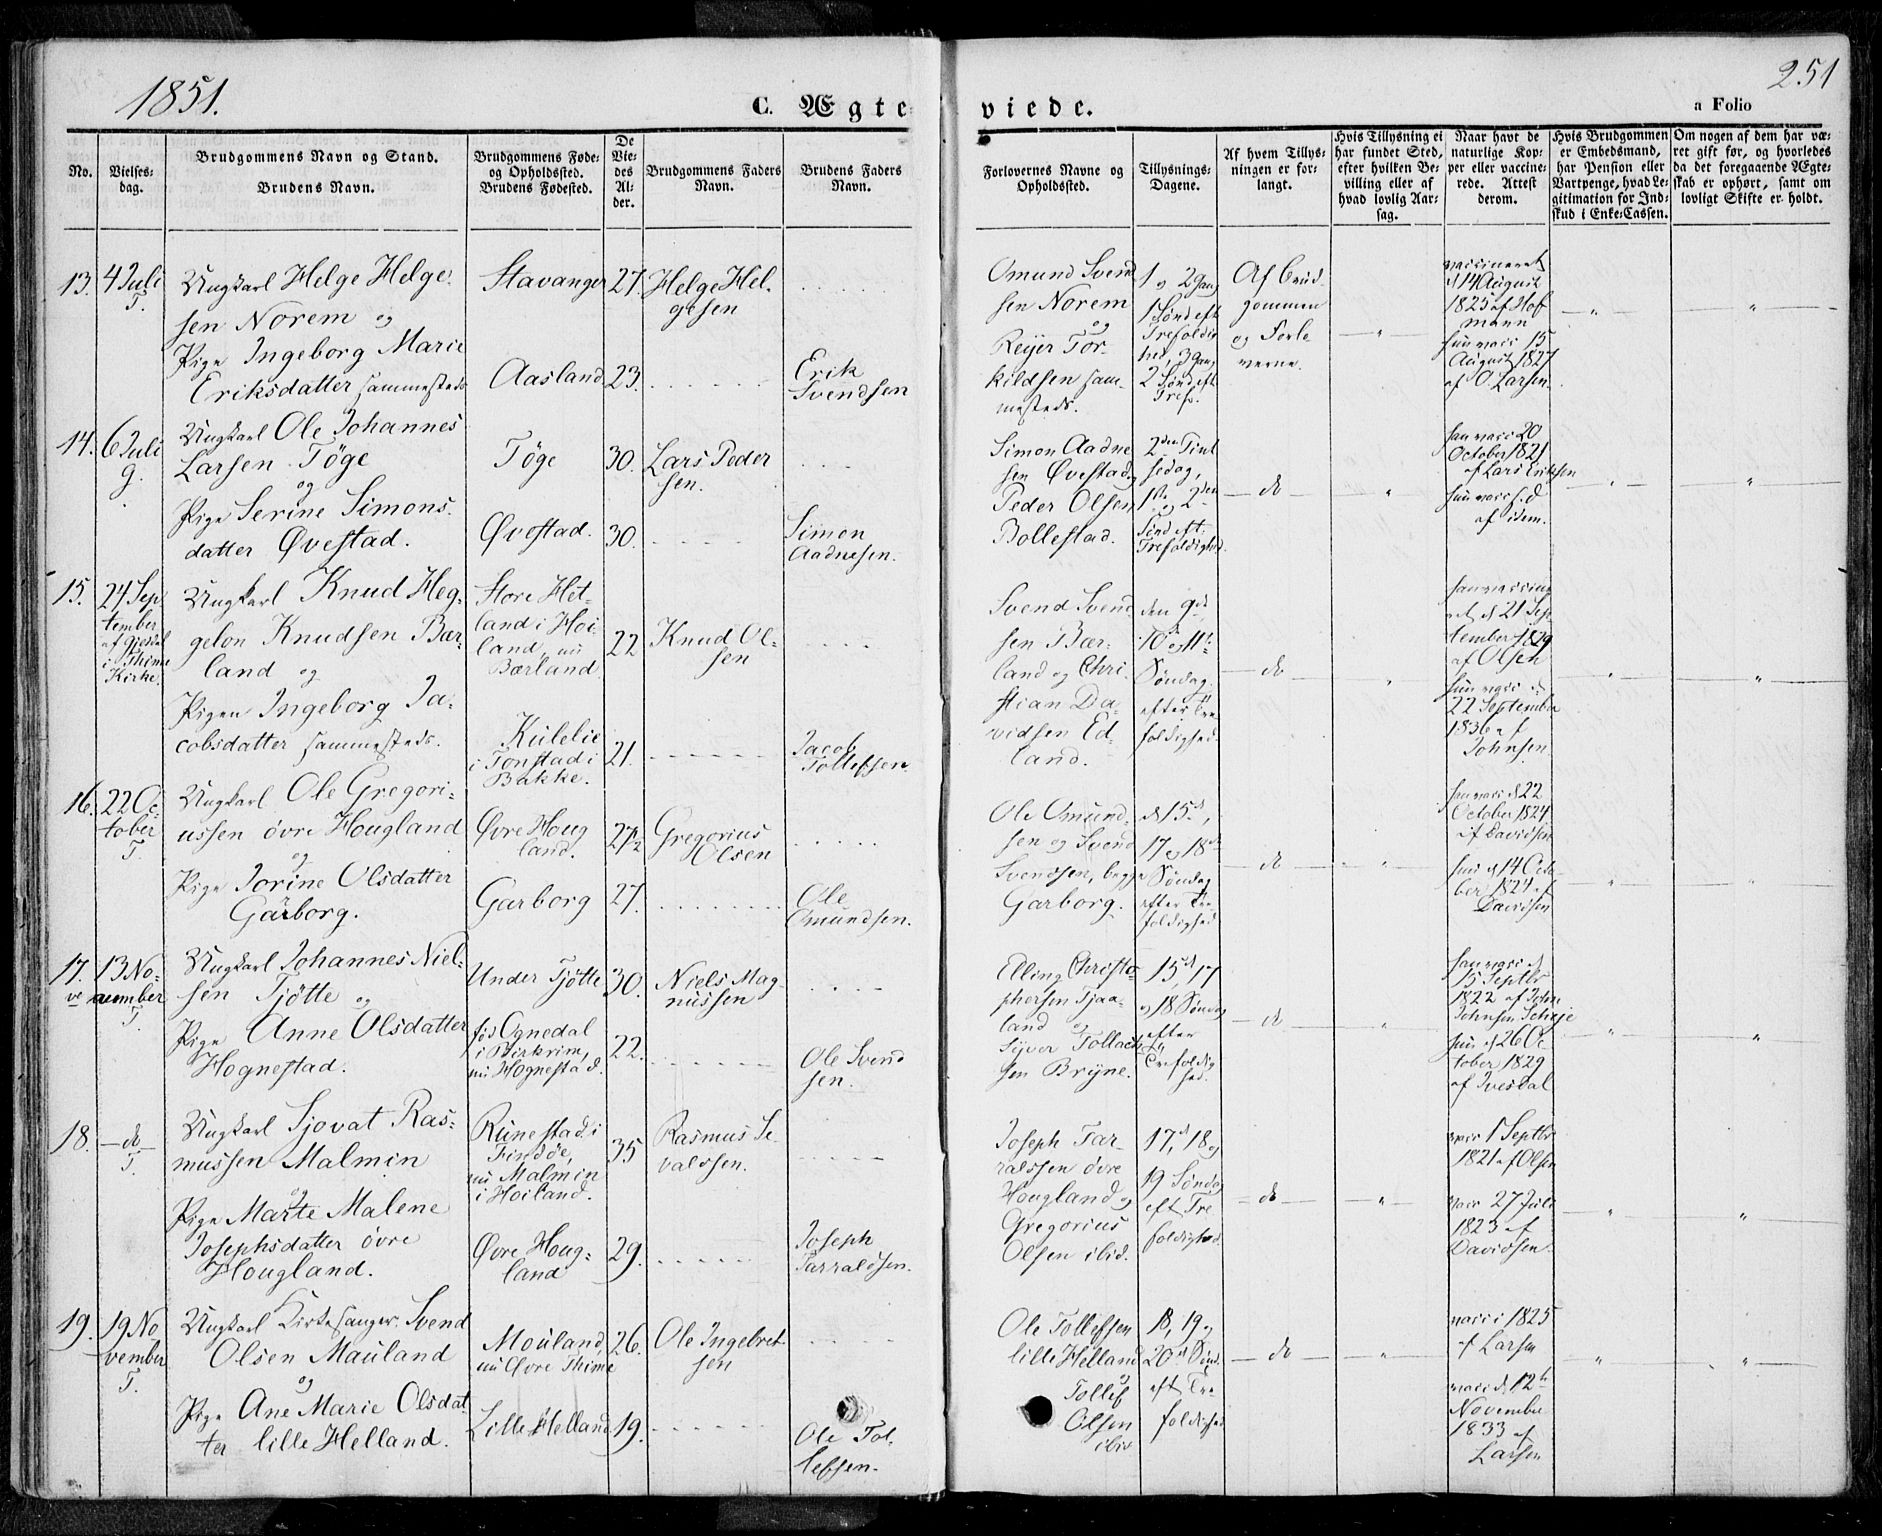 1851.
251
C. Ægte
viede.
a Folio
No.
Vielses-
dag.
Brudgommens Navn og Stand.
Brudens Navn.
Brudgommens Føde-
og Opholdssted.
Brudens Fødested.
De
Vie-
des
Al-
der.
Brudgommens Faders
Navn.
Brudens Faders
Navn.
Forlovernes Navne og
Opholdssted.
Tillysnings-
Dagene.
Af hvem Tillys-
ningen er for-
langt.
Hvis Tillysning ei
har fundet Sted,
efter hvilken Be-
villing eller af
hvad lovlig Aar-
sag.
Naar havt de
naturlige Kop-
per eller vaccine-
rede. Attest
derom.
Hvis Brudgommen
er Embedsmand,
har Pension eller
Vartpenge, hvad Le-
gitimation for Ind-
skud i Enke-Cassen.
Om nogen af dem har væ-
ret gift før, og hvorledes
da det foregaaende Ægte-
skab er ophørt, samt om
lovligt Skifte er holdt.
13.
4 Juli
T.
Ungkarl Helge Helge-
sen Norem og
Pige Ingeborg Marie
Eriksdatter sammesteds
Stavanger
Aasland
27.
23.
Helge Hel-
gesen
Erik
Svendsen
Omund Svend
sen Norem
og
Reijer Tor-
kildsen sam-
mesteds.
1 og 2 Gang
1 Sønd eft
Trefoldig
hed, 3 Gang
2 Sønd eft
Tref.
Af Brud-
gommen
og Forlo
verne.
vaccineret
d 14 August
1825 af Hof
mann
hun vacc 15
August 1827
af O. Larsen.
14.
6 Juli
g.
Ungkarl Ole Johannes
Larsen Töge
og
Pige Serine Simons-
datter Øvestad.
Töge
Øvestad.
30.
30.
Lars Peder
sen.
Simon
Aadnesen.
Simon Aadne
sen Øvestad,
Peder Olsen
Bollestad.
2den Pint
sedag,
1ste og 2den
Sønd eft.
Trefoldighed.
do
han vacc 20
October 1821
af Lars Eriksen
hun vacc f. d
af idem.
15.
24 Sep
tember
af Gjesdal
i Thime
Kirke.
Ungkarl Knud Heg-
gelon Knudsen Bær-
land og
Pigen Ingeborg Ja-
cobsdatter sammesteds.
Store Het-
land i Hoi-
land, nu
Bærland
Kulelie
i Tonstad i
Bakke.
22
21.
Knud Ol-
sen
Jacob
Tollefsen.
Svend Svend
sen Bær-
land og Chri-
stian Da-
vidsen Ed-
land.
den 9de
10 og 11te
Søndag
efter Tre
foldighed.
do
han vaccine
ret d 21 Sep
tember 1829
af Olsen
hun vacc d.
22 September
1836 af
Johnsen
16.
22 Oc-
tober
T.
Ungkarl Ole Gregori-
ussen övre Hougland
og
Pige Jorine Olsdatter
Garborg.
Øvre Houg
land.
Garborg
27½
27.
Gregorius
Olsen
Ole
Omundsen.
Ole Omund-
sen og Svend
Svendsen, begge
Garborg.
d 15de,
17 og 18de
Søndag
efter Tre
foldighed
do
han vacc d 22
October 1824
af Davidsen
hun d 14 Octo-
ber 1824 af
Davidsen
17.
13 No-
vember
T.
Ungkarl Johannes Niel-
sen Tjötte og
Pige Anne Olsdatter
Hognestad.
Under Tjötte
fød Ognedal
i Birkrim,
nu Hognestad.
30.
22.
Niels Mag-
nussen
Ole Svend
sen.
Elling Christo-
phersen Tjaa-
land og
Syver Tollach-
sen Bryne.
15d, 17
og 18 Søndag
efter
Trefoldig
hed.
do
han vacc d
15 Septbr
1822 af John
Johnsen
hun d 26 Oc-
tober 1829
af Ivesdal
18.
do
T.
Ungkarl Sjovat Ras-
mussen Malmin
og
Pige Marte Malene
Josephsdatter övre
Hougland.
Runestad i
Findöe,
nu Malmin
i Hoiland.
Øvre Houg-
land
35
29.
Rasmus Se-
valdsen.
Joseph
Tarraldsen.
Joseph Tar-
raldsen övre
Hougland og
Gregorius
Olsen ibid.
17d, 18 og
19 Søndag
eft Tre
foldighed
do
vacc 1 Septbr
1821 af Olsen
vacc 27 Juli
1823 af
Davidsen.
19.
19 No
vember
T.
Ungkarl Kirkesanger Svend
Olsen Mauland
og
Pige Ane Marie Olsdat-
ter lille Helland.
Mouland,
nu Øvre Thime
Lille Helland
26.
19.
Ole Ingebret-
sen
Ole Tol-
lefsen.
Ole Tollefsen
lille Helland
og
Tollef
Olsen
ibid
18, 19 og
20d Sønd.
eft Tre
foldighed
do
vacc i 1825
af Larsen
vacc d. 12te
November
1833 af
Larsen